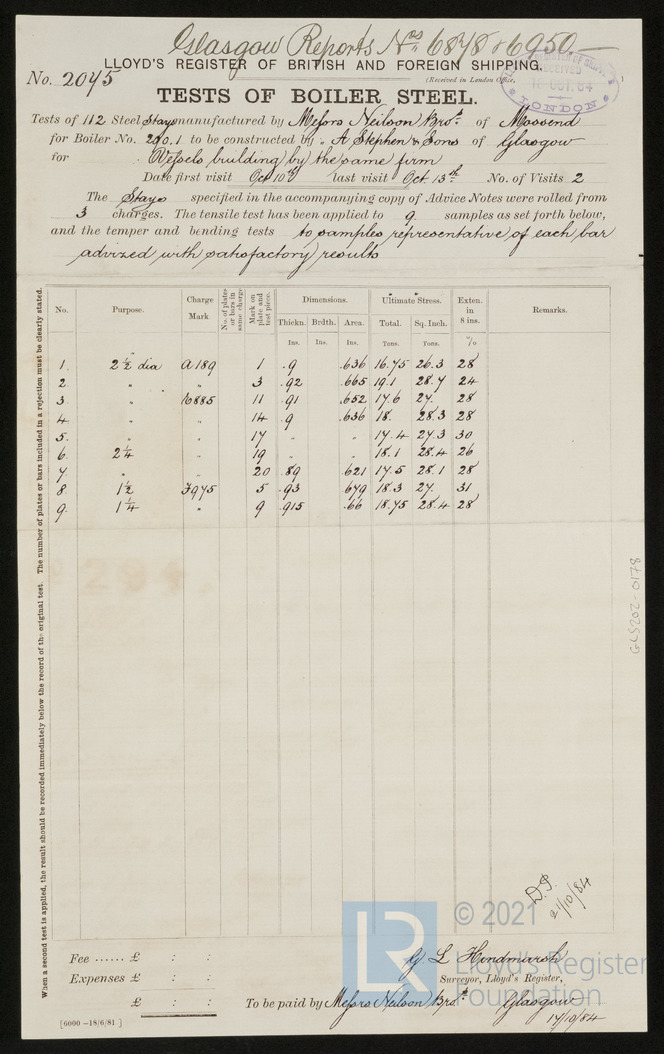 Glasgow Reports Nos 6878 & 6950.—
LLOYD'S REGISTER OF BRITISH AND FOREIGN SHIPPING.
No. 2075
(Received in London Office,
RECEIVED
OCT. 84
LONDON
TESTS OF BOILER STEEL.
Tests of 112 Steel Stays manufactured by Messrs Neilson Bros. of Mossend
for Boiler No. 290.1 to be constructed by A Stephen & Sons of Glasgow
for Vessels building by the same firm
Date first visit Oct 10th last visit Oct. 13th No. of Visits 2
The Stays specified in the accompanying copy of Advice Notes were rolled from
3 charges. The tensile test has been applied to 9 samples as set forth below,
and the temper and bending tests to samples representative of each bar
advized with satisfactory results
When a second test is applied, the result should be recorded immediately below the record of the original test. The number of plates or bars included in a rejection must be clearly stated.
No. Purpose. Charge Mark No. of plates or bars in same charge Mark on plate and test piece. Dimensions. Ultimate Stress. Exten. in 8 ins. Remarks.
Thickn. Brdth. Area. Total. Sq. Inch.
Ins. Ins. Ins. Tons. Tons. %
1. 2½ dia A189 1 .9 .636 16.75 26.3 28
2. " " 3 .92 .665 19.1 28.7 24
3 " 11 .91 .652 17.6 27. 28
4. " " 14 .9 .636 18. 28.3 28
5. " " 17 " " 17.4 27.3 30
6. 2¼ " 19 " " 18.1 28.4 26
7. " " 20 .89 .621 17.5 28.1 28
8. 1½ 7975 5 .93 .679 18.3 27. 31
9. 1¼ " 9 .915 .66 18.75 28.4 28
GLS202-0178
21/10/84
© 2021
LR
Lloyd's Register
Foundation
Fee ...... £ : :
Expenses £ : :
£ : :
G. L. Hindmarsh
Surveyor, Lloyd's Register,
To be paid by Messrs Neilson Bros. Glasgow
17/10/84
[6000 -18/6/81]